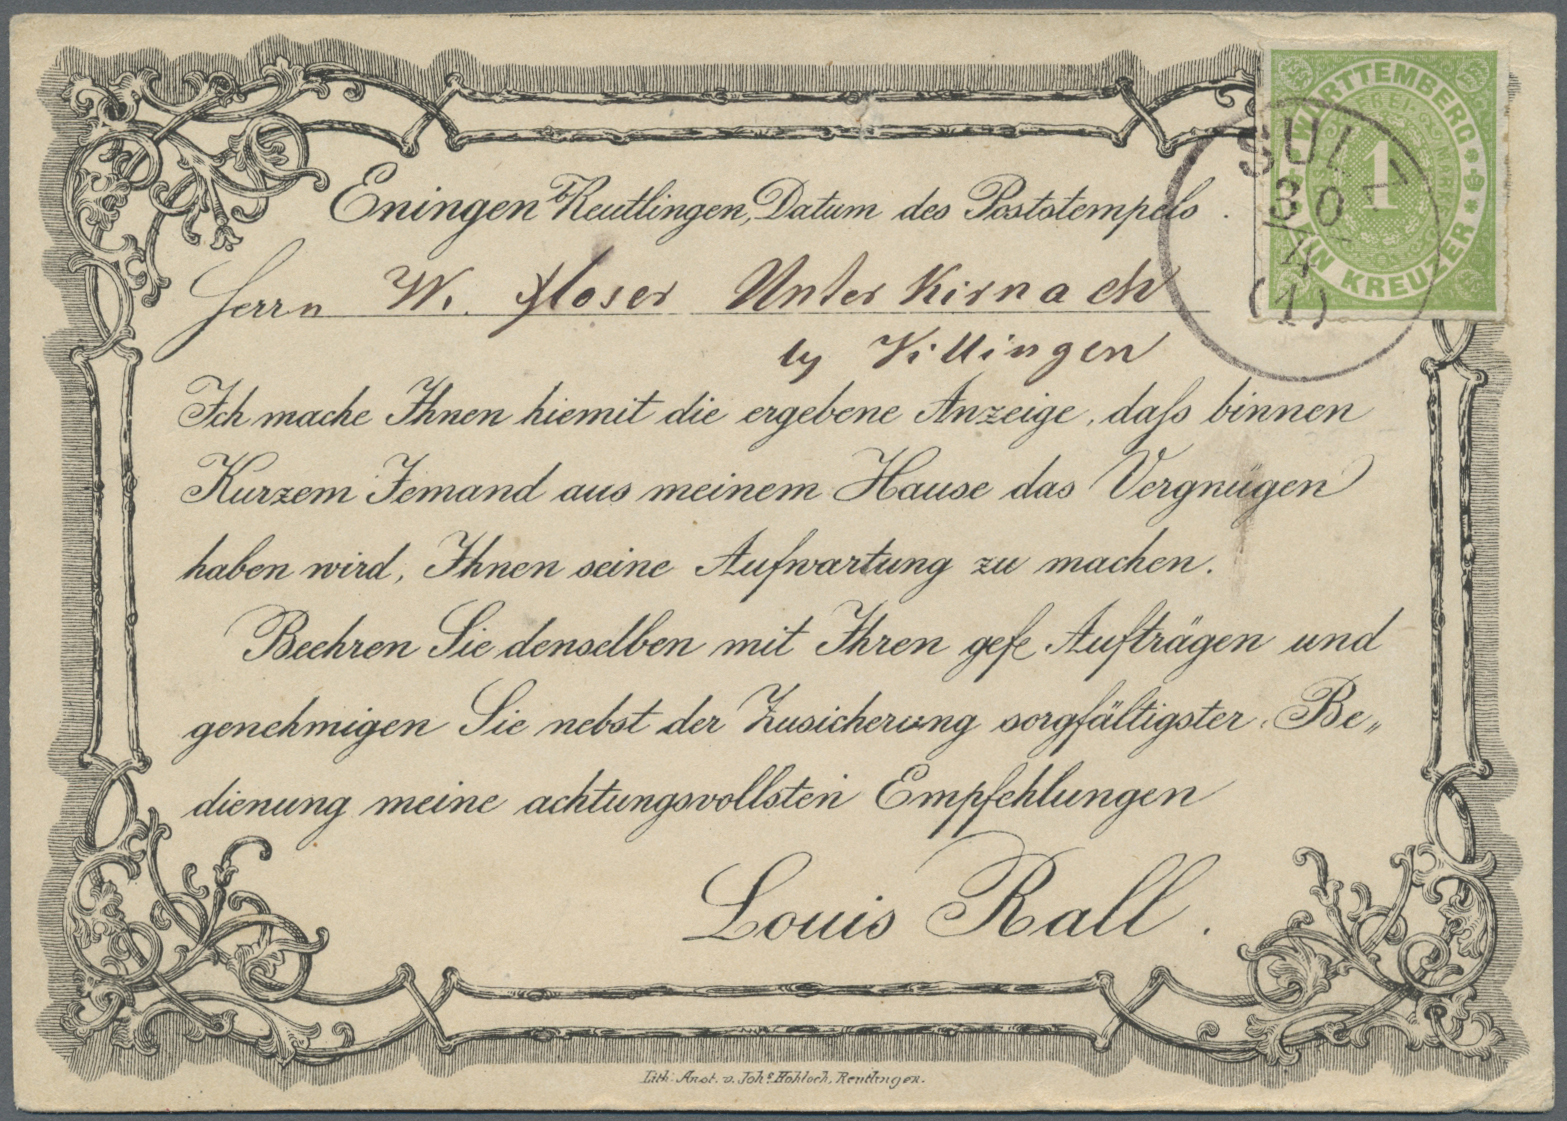 WÜRTTEMBERG
FREI-MARKE
1
EIN KREUZER
SULZ
30
4
(1)
Eningen b/Reutlingen, Datum des Poststempels.
Herrn W. Moser Unter Kirnach
by Villingen
Ich mache Ihnen hiemit die ergebene Anzeige, daſs binnen
Kurzem Jemand aus meinem Hause das Vergnügen
haben wird, Ihnen seine Aufwartung zu machen.
Beehren Sie denselben mit Ihren gefe Aufträgen und
genehmigen Sie nebst der Zusicherung sorgfältigster Be„
dienung meine achtungsvollsten Empfehlungen
Louis Rall.
Lith: Anst. v. Johs Hohloch, Reutlingen.